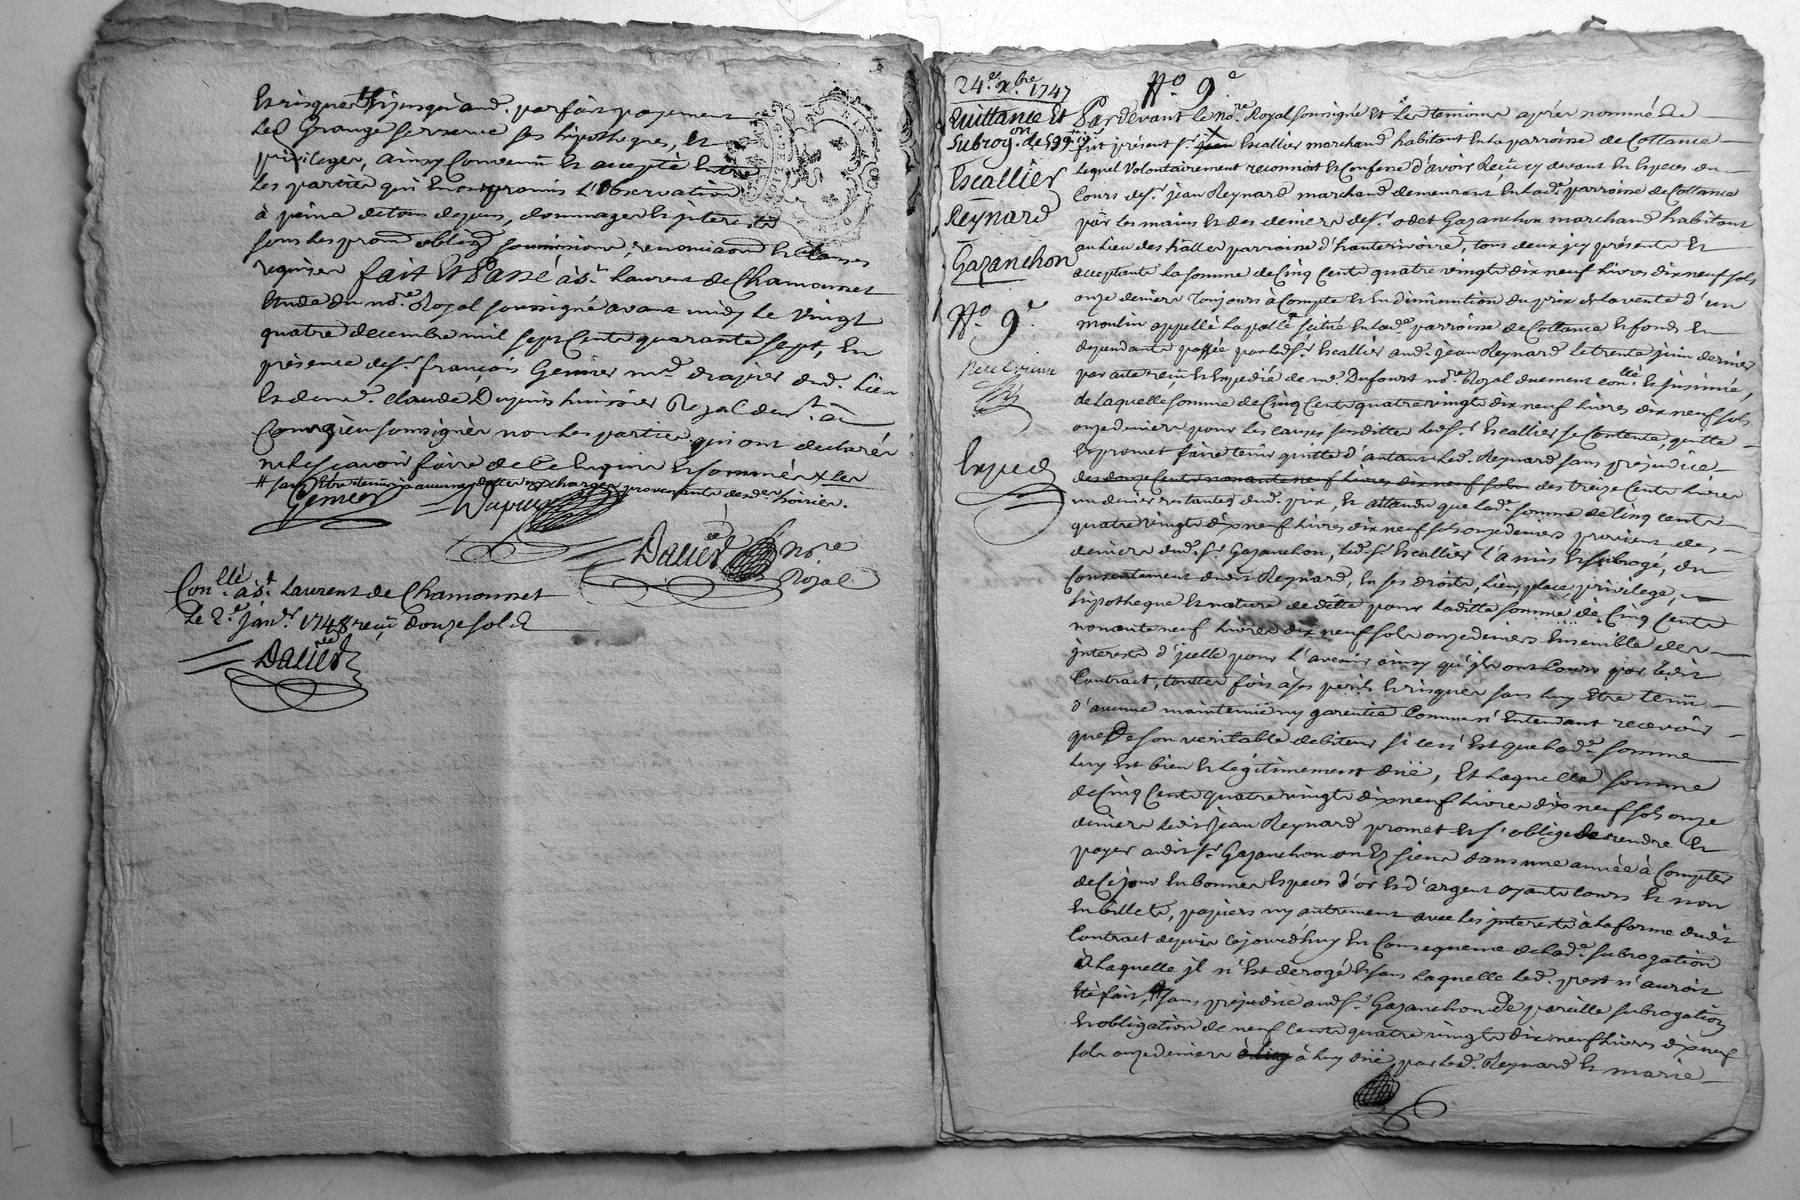 Et risques Et jusqu'aud. parfait payement
led Grange se reserve ses hipotheques, et
privileges, ainsy Convenu Et accepté Entre
les parties qui En ont promis L'observation
à peine de tous depens, dommages Et interests
sous les prom oblig soumissions, renonciaons Et Clauses
requises fait Et Passé à st. Laurent de Chamousset
Etude du nore. Royal soussigné avant midy le vingt
quatre decembre mil sept Cents quarante sept, En
présence de sr. françois Genier md. drapier dud. Lieu
Et de me. claude Dupuis huissier Royal de st. à
soussignés non les parties qui ont declarés
ne le sçavoir faire de Ce Enquis Et sommées
Genier Dupuis
Dalier nore
Royal
Conllé. à st. Laurent de Chamousset
Le 2e. janvr. 1748 reçu douze sols
Dalier
24e. xbre 1747
No. 9e
Quittance Et
Subrogon. de 599 ll
Escallier
Reynard
Gazanchon
No. 9e.
Exped
Pardevant le nore. Royal soussigné Et Les temoins après nommés
fut présent sr. jean Escallier marchand habitant En la parroisse de Cottance
lequel volontairement reconnoit Et Confesse d'avoir Reçu cy devant En Especes du
Cours de sr. jean Reynard marchand demeurant En lade. parroisse de Cottance
par les mains Et des deniers de sr. odet Gazanchon marchand habitant
au lieu des halles parroisse d'hauterivoire, tous deux icy présents Et
acceptants La somme de Cinq Cents quatre vingts dix neuf livres dix neuf sols
onze deniers toujours à Compte Et En diminution du prix de la vente d'un
moulin appellé la située En lade. parroisse de Cottance Et fonds En
dependants passée par led sr. Escallier aud. jean Reynard le trente juin dernier
par acte reçu Et Expedié de me. Dufourt nore. Royal duement conllé. Et insinué,
de Laquelle somme de Cinq Cents quatre vingts dix neuf livres dix neuf sols
onze deniers pour les causes susdittes led sr. Escallier se Contente, quitte
Et promet faire tenir quitte d'autant led. Reynard sans prejudice
des douze Cents nonante neuf livres dix neuf sols des treize Cents livres
un denier restantes dud. prix, Et attendu que lade. somme de Cinq cents
quatre vingts dix neuf livres dix neuf sols onze deniers provient des
deniers dud. sr. Gazanchon, led. sr. Escallier l'a mis Et subrogé, du
consentement dudit Reynard, En ses droits, Lieu, place, privilege,
hipotheque Et nature de dette pour laditte somme de Cinq Cents
nonante neuf livres dix neuf sols onze deniers Ensemble des
interests d'icelle pour l'avenir ainsy qu'ils ont Cours par ledit
Contract, touttes fois à ses perils Et risques sans luy Etre tenu
d'aucune maintenuë ny garentie Comme n'Entendant recevoir
que De son veritable debiteur si ce n'Est que lade. somme
luy est bien Et légitimement duë, Et Laquelle somme
de Cinq Cents quatre vingts dix neuf livres dix neuf sols onze
deniers ledit jean Reynard promet Et s'oblige de rendre Et
payer audit sr. Gazanchon ou Es siens dans une année à Compter
de Ce jour En bonnes Especes d'or Et d'argent ayants Cours Et non
En billets, papiers ny autrement avec les interests à la forme dudit
Contract depuis cejourd'huy En Consequence de lade. subrogation
à laquelle il n'Est derogé Et sans laquelle led. prest n'auroit
Eté fait, sans prejudice aud sr. Gazanchon de pareille subrogation
Et obligation de neuf cents quatre vingts dix neuf livres dix neuf
sols onze deniers à luy duë par led. Reynard Et marie